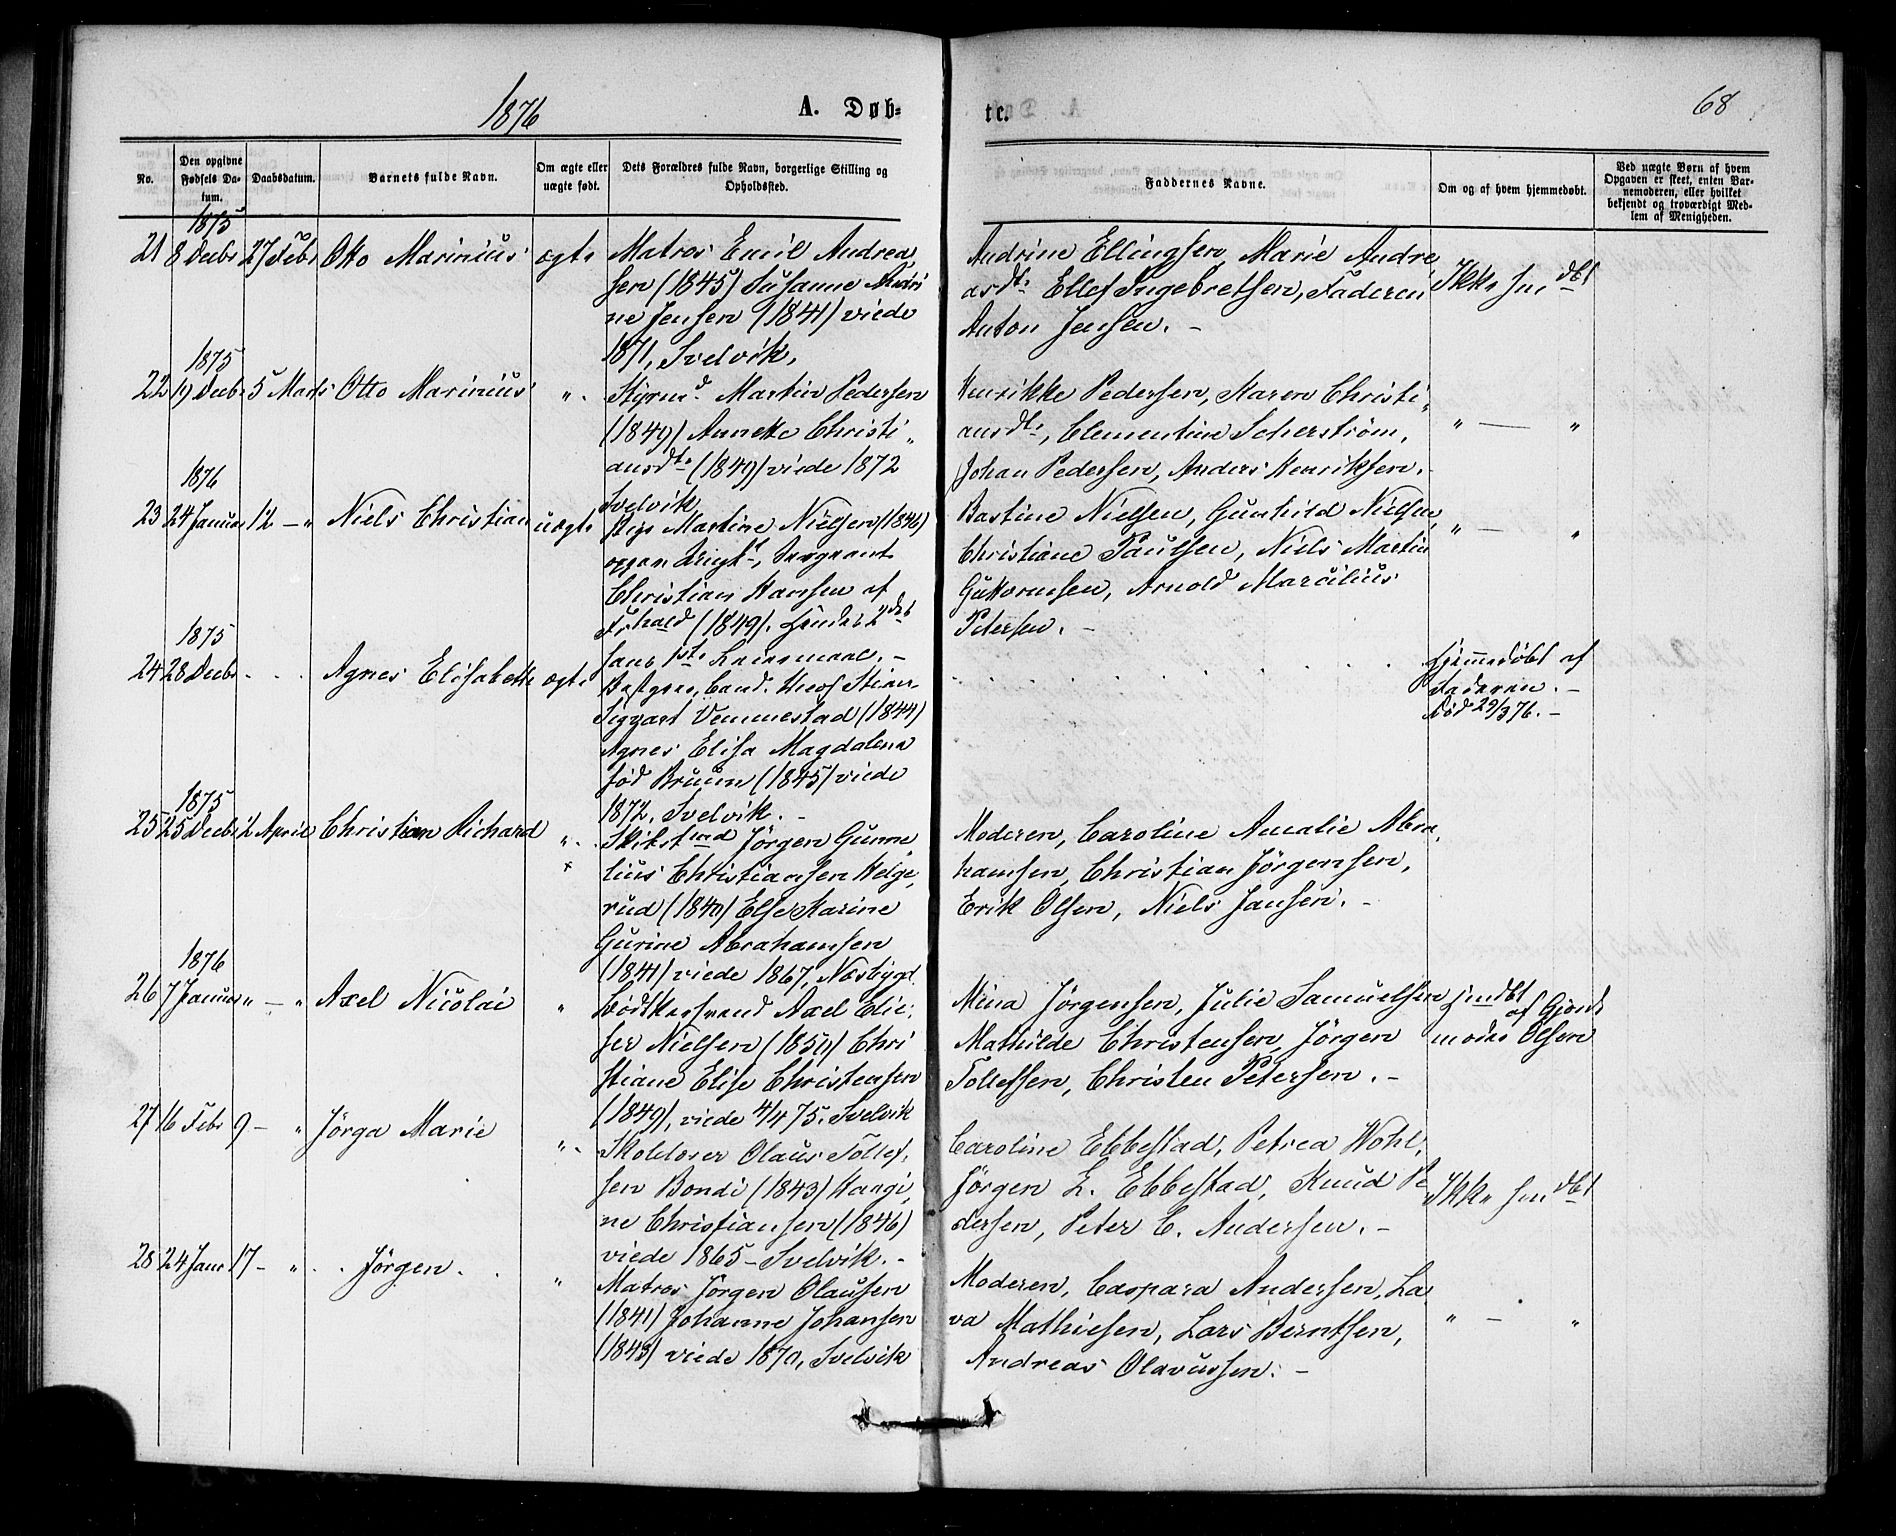 1876
A. Døb=
tc.
68
No.
Den opgivne Fødsels Da- tum.
Daabsdatum.
Barnets fulde Navn.
Om ægte eller uægte født.
Dets Forældres fulde Navn, borgerlige Stilling og Opholdssted.
Faddernes Navne.
Om og af hvem hjemmedøbt.
Ved uægte Børn af hvem Opgaven er skeet, enten Bar- nemoderen, eller hvilket bekjendt og troværdigt Med- lem af Menigheden.
1875
21 8 Decbr 27 Febr Otto Marinius ægte Matros Emil Andrea,
sen (1845) Susanne Andri
ne Jensen (1841) viede
1871, Svelvik.
Andrine Ellingsen, Marie Andre,
asdtr Ellef Ingebretsen, Faderen
Anton Jensen. -
Ikke hmdbt
1875
22 19 Decbr 5 Marts Otto Marinius " Styrmd. Martin Pedersen
(1849) Annette Christi,
ansdtr (1849) viede 1872
Svelvik
Henrikke Pedersen, Karen Christi,
ansdtr, Clementine Scherstrøm,
Johan Pedersen, Anders Henriksen.
" — "
1876
23 24 Januar 12 - " Niels Christian uægte Pige Martine Nielsen (1846)
Christian Hansen af
(1849). Hendes 2det
hans 1ste Leiermaal. -
Bastine Nielsen, Gunhild Nielsen,
Christiane Paulsen, Niels Martin
Guttormsen, Arnold Marcilius
Petersen. -
" — "
1875
24 28 Decbr . . . Agnes Elisabeth ægte Cand. theol Stian
Siggart Vemmestad (1844)
Agnes Elisa Magdalena
fød Bruun (1845) viede
1872, Svelvik. -
Hjemmedøbt af
Faderen. -
Død 29/3 76. -
1875
25 25 Decbr 2 April Christian Richard " Skibstmd Jörgen Gunne
lius Christiansen Helge,
rud (1840) Else Karine
Gurine Abrahamsen
(1841) viede 1867, Næsbygd.
Moderen, Caroline Amalie Abra,
hamsen, Christian Jörgensen,
Erik Olsen, Niels Jansen. -
1876
26 7 Januar " - " Axel Nicolai " Bødkersvend Axel Elie,
ser Nielsen (1850) Chri
stiane Elise Christensen
(1849), viede 4/4 75. Svelvik
Mina Jörgensen, Julie Samuelsen
Mathilde Christensen, Jörgen
Tollefsen, Christen Petersen. -
hmdbt af Gjord
moder Olsen
27 16 Febr 9 - " Jörga Marie " Skolelærer Olaus Tollef,
sen Bondi (1843) Hangi,
ne Christiansen (1846)
viede 1865 - Svelvik. -
Caroline Ebbestad, Petrea Wohl,
Jörgen L. Ebbestad, Knud Pe
dersen, Peter C. Andersen. -
Ikke hmdbt
28 24 Janr 17 - " . . Jörgen . . " Matros Jörgen Olausen
(1841) Johanne Johansen
(1843) viede 1870, Svelvik
Moderen, Caspara Andersen, La
va Mathiesen, Lars Berntsen,
Andreas Olavussen. -
" - "